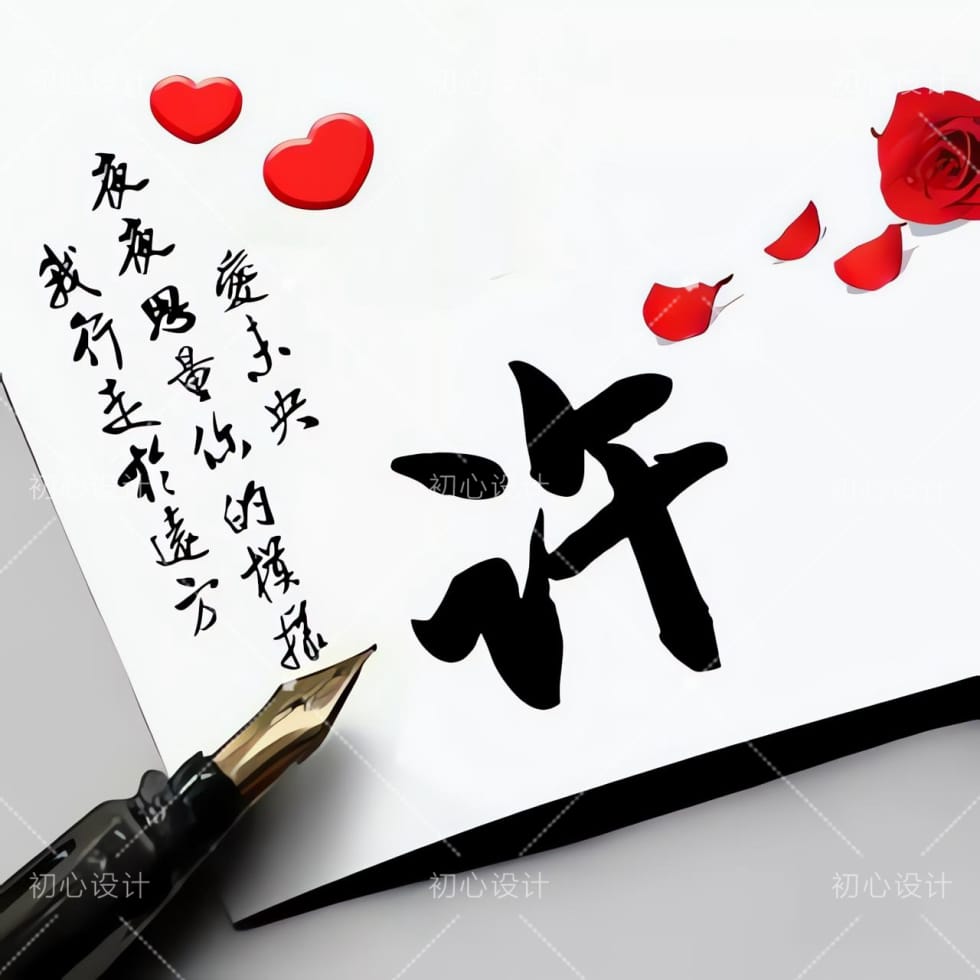 愛未央
夜夜思量你的模樣
我行走於遠方
许
初心设计
初心设计
初心设计
初心设计
初心设计
初心设计
初心设计
初心设计
初心设计